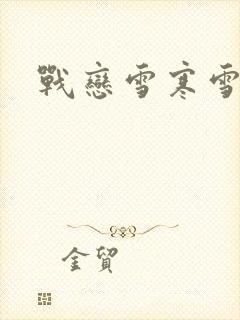 戰戀雪寒雪
金貿